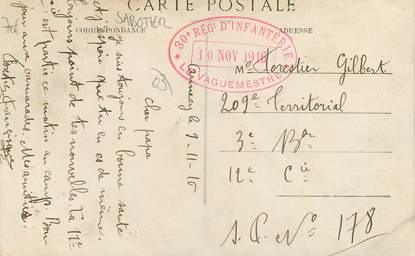 CARTE POSTALE
CORRESPONDANCE
ADRESSE
SABOTIER
30e REGt D'INFANTERIE
10 NOV 1916
LE VAGUEMESTRE
Annecy le 9-11-16
Cher papa
Je suis toujours en bonne santé
et j'espère que tu es de même.
toujours point de tes nouvelles. La 11e
est partie ce matin au camp. Bon
jour aux camarades. Mes amitiés.
Mr Forestier Gilbert
209e Territorial
3e Bon
12e Cie
S. P. No 178